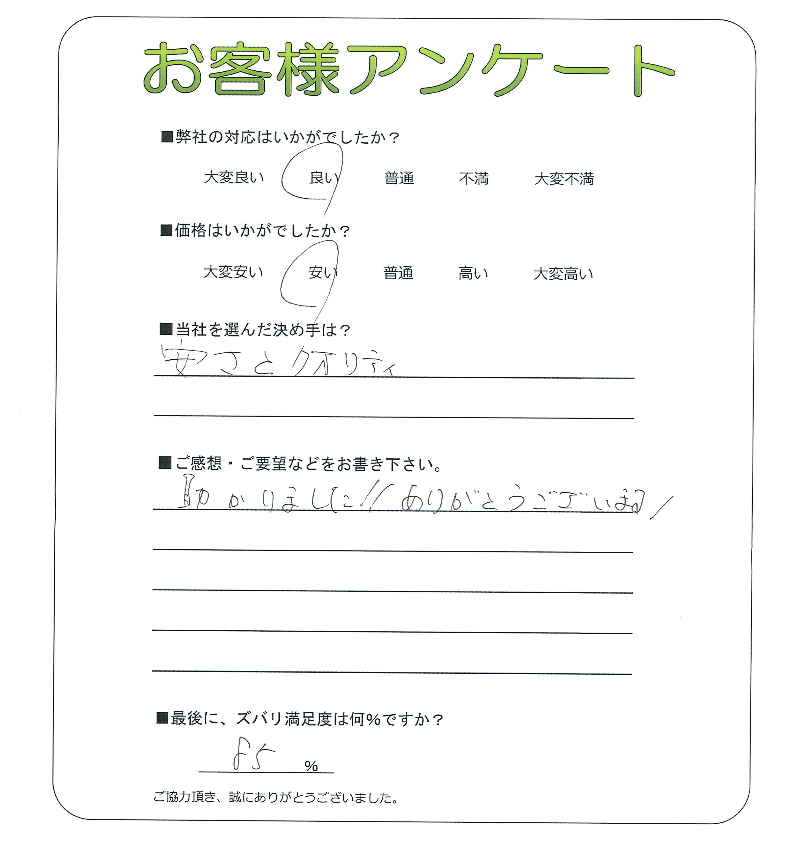 お客様アンケート
■弊社の対応はいかがでしたか？
大変良い 良い 普通 不満 大変不満
■価格はいかがでしたか？
大変安い 安い 普通 高い 大変高い
■当社を選んだ決め手は？
安さとクオリティ
■ご感想・ご要望などをお書き下さい。
助かりました!! ありがとうございます!
■最後に、ズバリ満足度は何％ですか？
85 %
ご協力頂き、誠にありがとうございました。